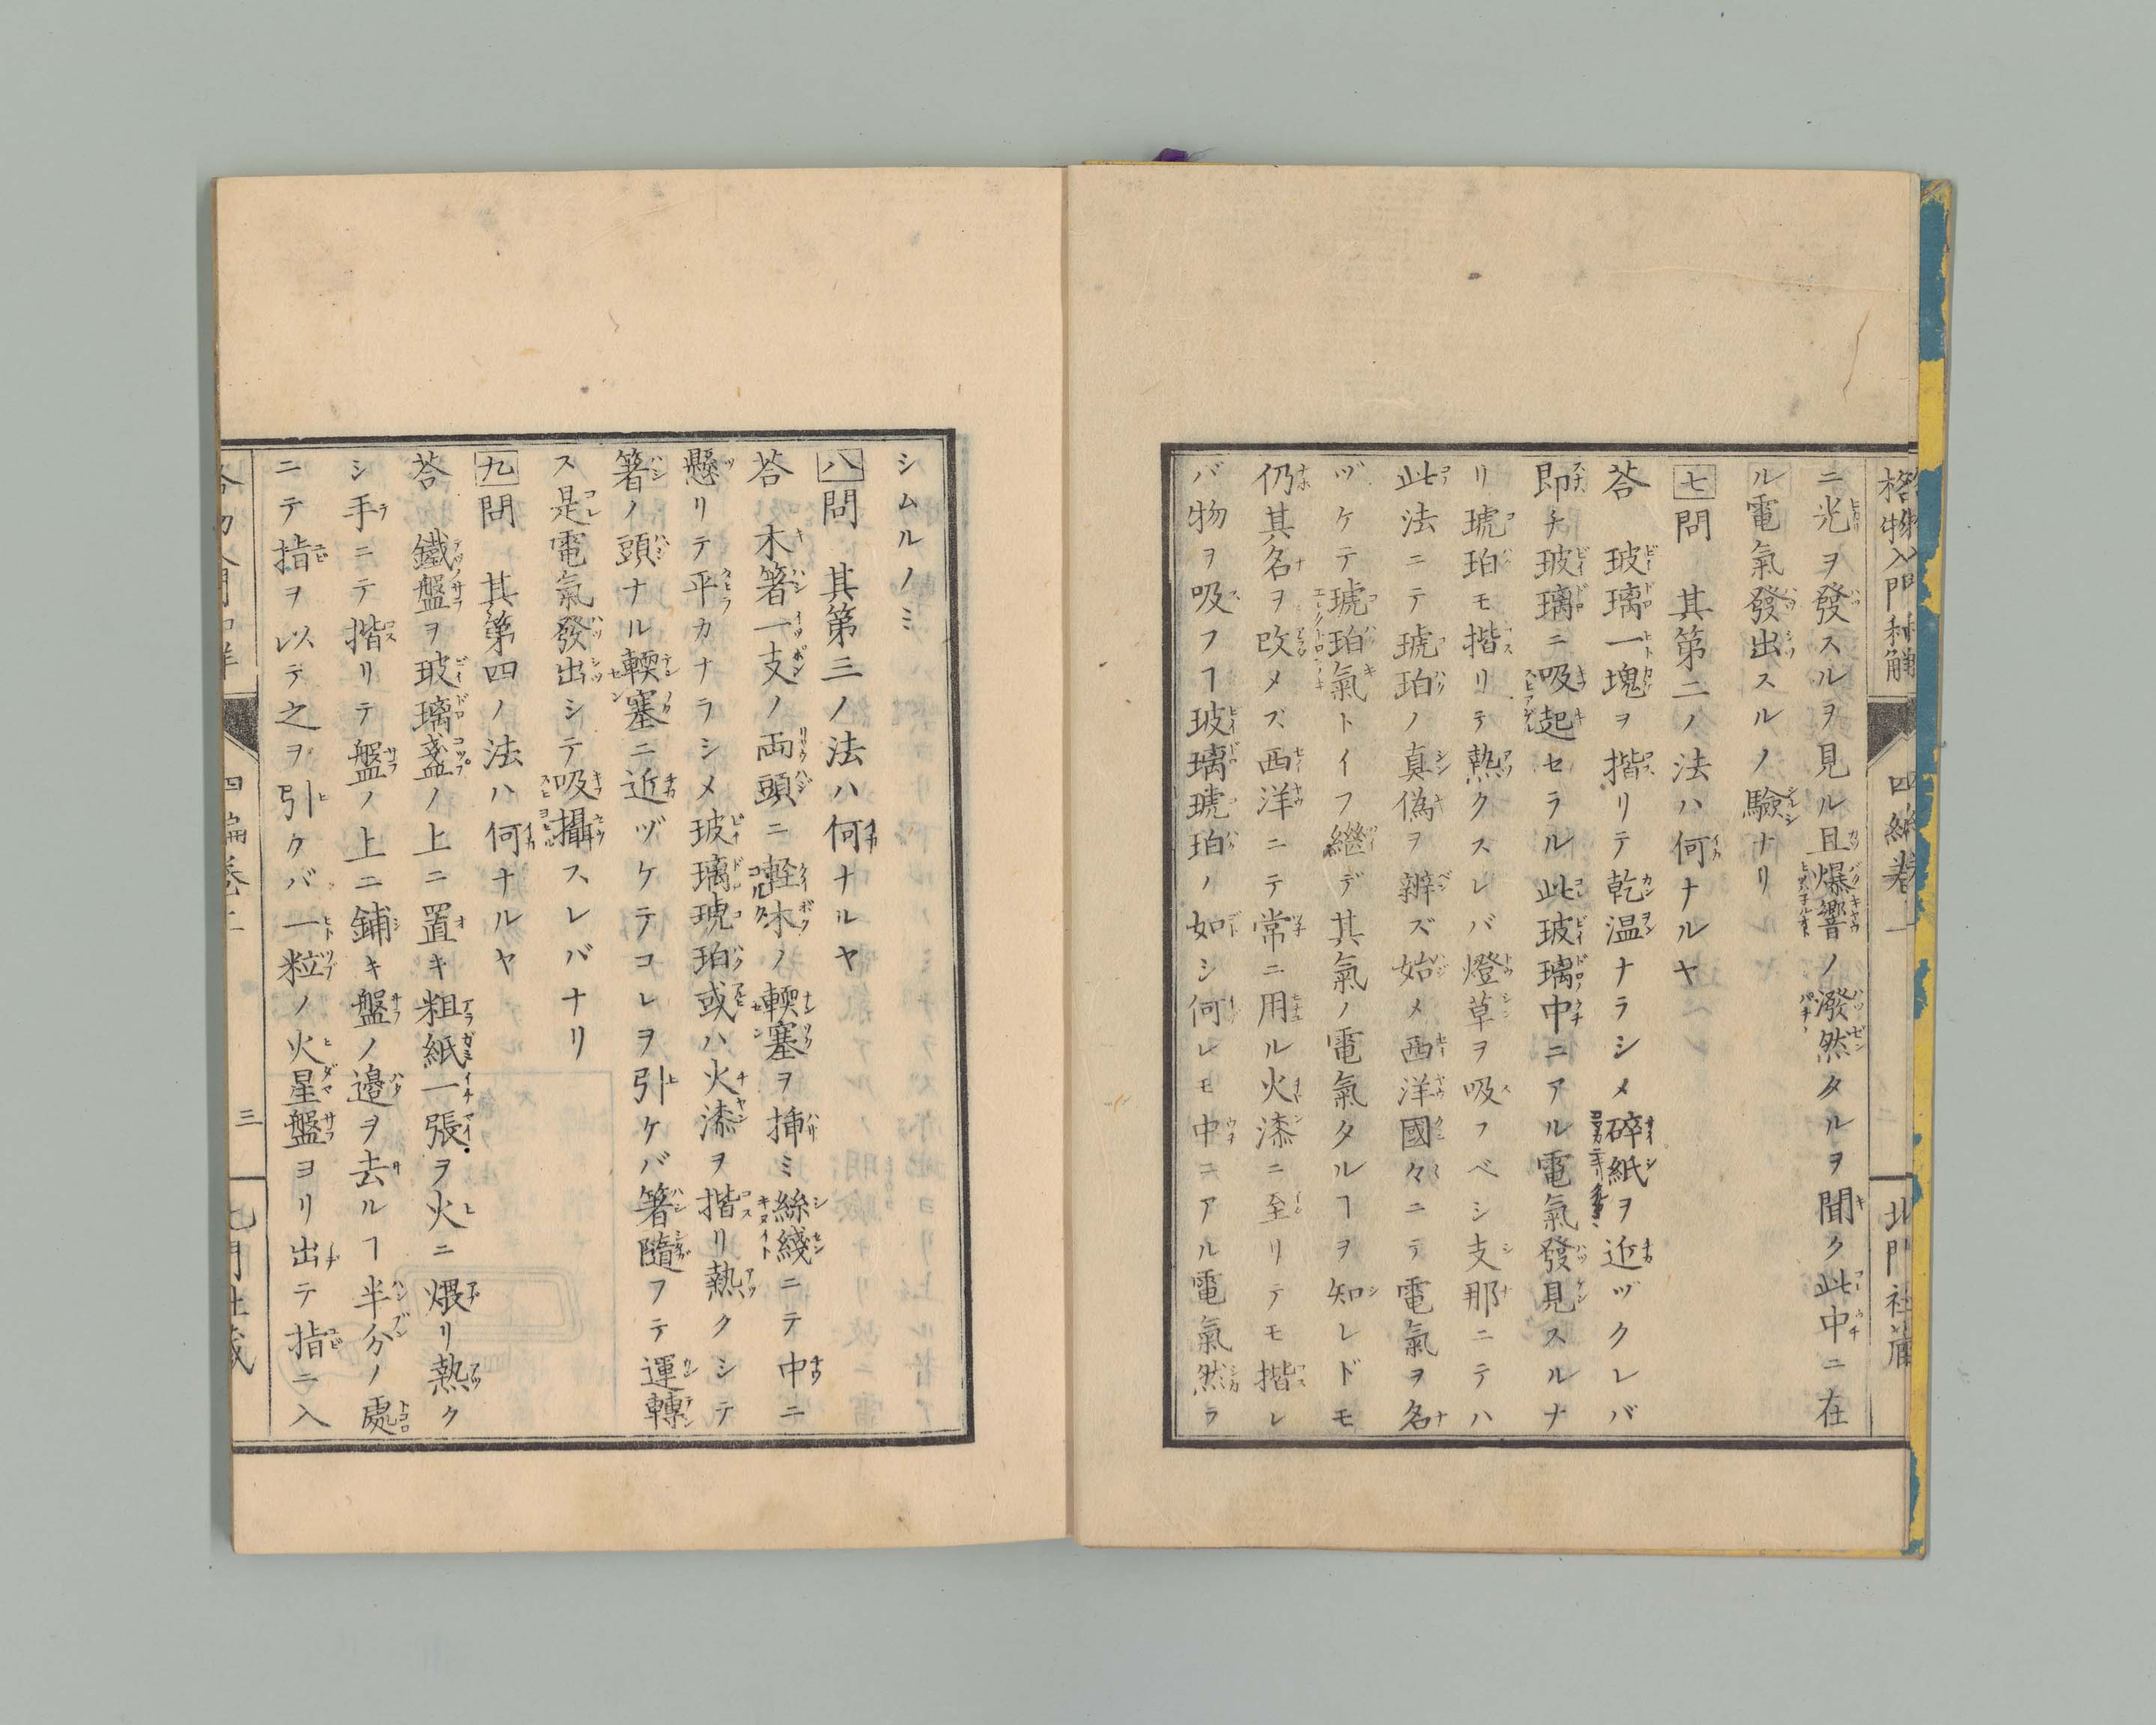 格物入門和解
四編巻上
北門社蔵
ニ光ヲ發スルヲ見ル且爆響ノ潑然タルヲ聞ク此中ニ在
ル電氣發出スルノ驗ナリ
七問　其第二ノ法ハ何ナルヤ
荅　玻璃一塊ヲ揩リテ乾温ナラシメ碎紙ヲ近ヅクレバ
即チ玻璃ニ吸起セラル此玻璃中ニアル電氣發見スルナ
リ琥珀モ揩リテ熱クスレバ燈草ヲ吸フベシ支那ニテハ
此法ニテ琥珀ノ真偽ヲ辨ズ始メ西洋國々ニテ電氣ヲ名
ヅケテ琥珀氣トイフ繼デ其氣ノ電氣タルヿヲ知レドモ
仍其名ヲ改メズ西洋ニテ常ニ用ル火漆ニ至リテモ揩レ
バ物ヲ吸フヿ玻璃琥珀ノ如シ何レモ中ニアル電氣然ラ
シムルノミ
八問　其第三ノ法ハ何ナルヤ
荅　木箸一支ノ両頭ニ軽木ノ輭塞ヲ挿ミ絲綫ニテ中ニ
懸リテ平カナラシメ玻璃琥珀或ハ火漆ヲ揩リ熱クシテ
箸ノ頭ナル輭塞ニ近ヅケテコレヲ引ケバ箸隨フテ運轉
ス是電氣發出シテ吸攝スレバナリ
九問　其第四ノ法ハ何ナルヤ
荅　鐵盤ヲ玻璃盞ノ上ニ置キ粗紙一張ヲ火ニ煨リ熱ク
シ手ニテ揩リテ盤ノ上ニ鋪キ盤ノ邉ヲ去ルヿ半分ノ處
ニテ指ヲ以テ之ヲ引クバ一粒ノ火星盤ヨリ出テ指ニ入
三